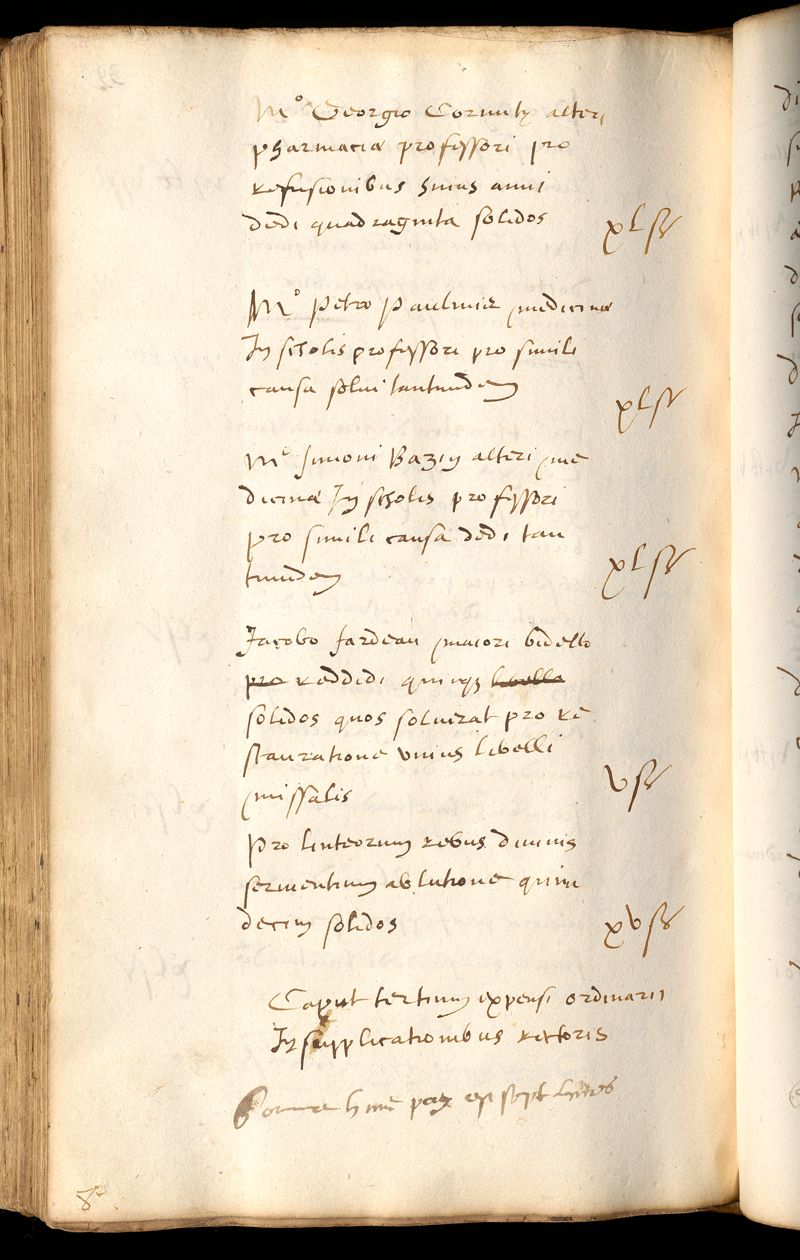 M.º Georgio Cornuty alteri
pharmaciæ professori pro
refusionibus huius anni
dedi quadraginta solidos xl s
M.º petro paulmier medicinæ
In scholis professori pro simili
causa solvi tantundem xl s
M.º simoni Bazin alteri me
dicinæ In scholis professori
pro simili causa dedi tan
tundem xl s
Jacobo fardeau maiori bidello
pro reddidi quinqz libello
solidos quos solverat pro re
stauratione unius libelli
missalis v s
Pro linteorum rebus divinis
servientium ablutione quin
decim solidos xv s
Caput tertium expensi ordinarii
In supplicationibus rectoris
Somme pag sept livres